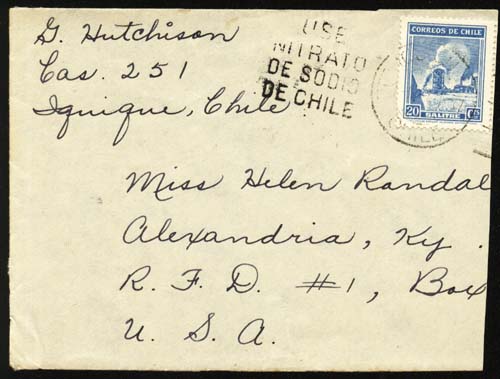 G. Hutchison
Cas. 251
Iquique, Chile
USE
NITRATO
DE SODIO
DE CHILE
CORREOS DE CHILE
20 Cts
SALITRE
CHILE
Miss Helen Randal
Alexandria, Ky.
R. F. D. #1, Box
U. S. A.